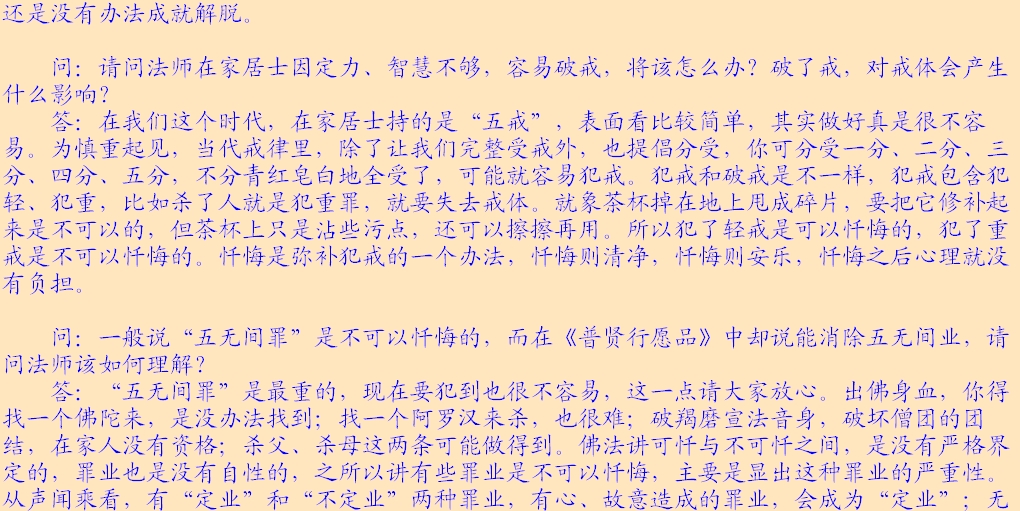 还是没有办法成就解脱。
问：请问法师在家居士因定力、智慧不够，容易破戒，将该怎么办？破了戒，对戒体会产生
什么影响？
答：在我们这个时代，在家居士持的是“五戒”，表面看比较简单，其实做好真是很不容
易。为慎重起见，当代戒律里，除了让我们完整受戒外，也提倡分受，你可分受一分、二分、三
分、四分、五分，不分青红皂白地全受了，可能就容易犯戒。犯戒和破戒是不一样，犯戒包含犯
轻、犯重，比如杀了人就是犯重罪，就要失去戒体。就象茶杯掉在地上甩成碎片，要把它修补起
来是不可以的，但茶杯上只是沾些污点，还可以擦擦再用。所以犯了轻戒是可以忏悔的，犯了重
戒是不可以忏悔的。忏悔是弥补犯戒的一个办法，忏悔则清净，忏悔则安乐，忏悔之后心理就没
有负担。
问：一般说“五无间罪”是不可以忏悔的，而在《普贤行愿品》中却说能消除五无间业，请
问法师该如何理解？
答：“五无间罪”是最重的，现在要犯到也很不容易，这一点请大家放心。出佛身血，你得
找一个佛陀来，是没办法找到；找一个阿罗汉来杀，也很难；破羯磨宣法音身，破坏僧团的团
结，在家人没有资格；杀父、杀母这两条可能做得到。佛法讲可忏与不可忏之间，是没有严格界
定的，罪业也是没有自性的，之所以讲有些罪业是不可以忏悔，主要是显出这种罪业的严重性。
从声闻乘看，有“定业”和“不定业”两种罪业，有心、故意造成的罪业，会成为“定业”；无